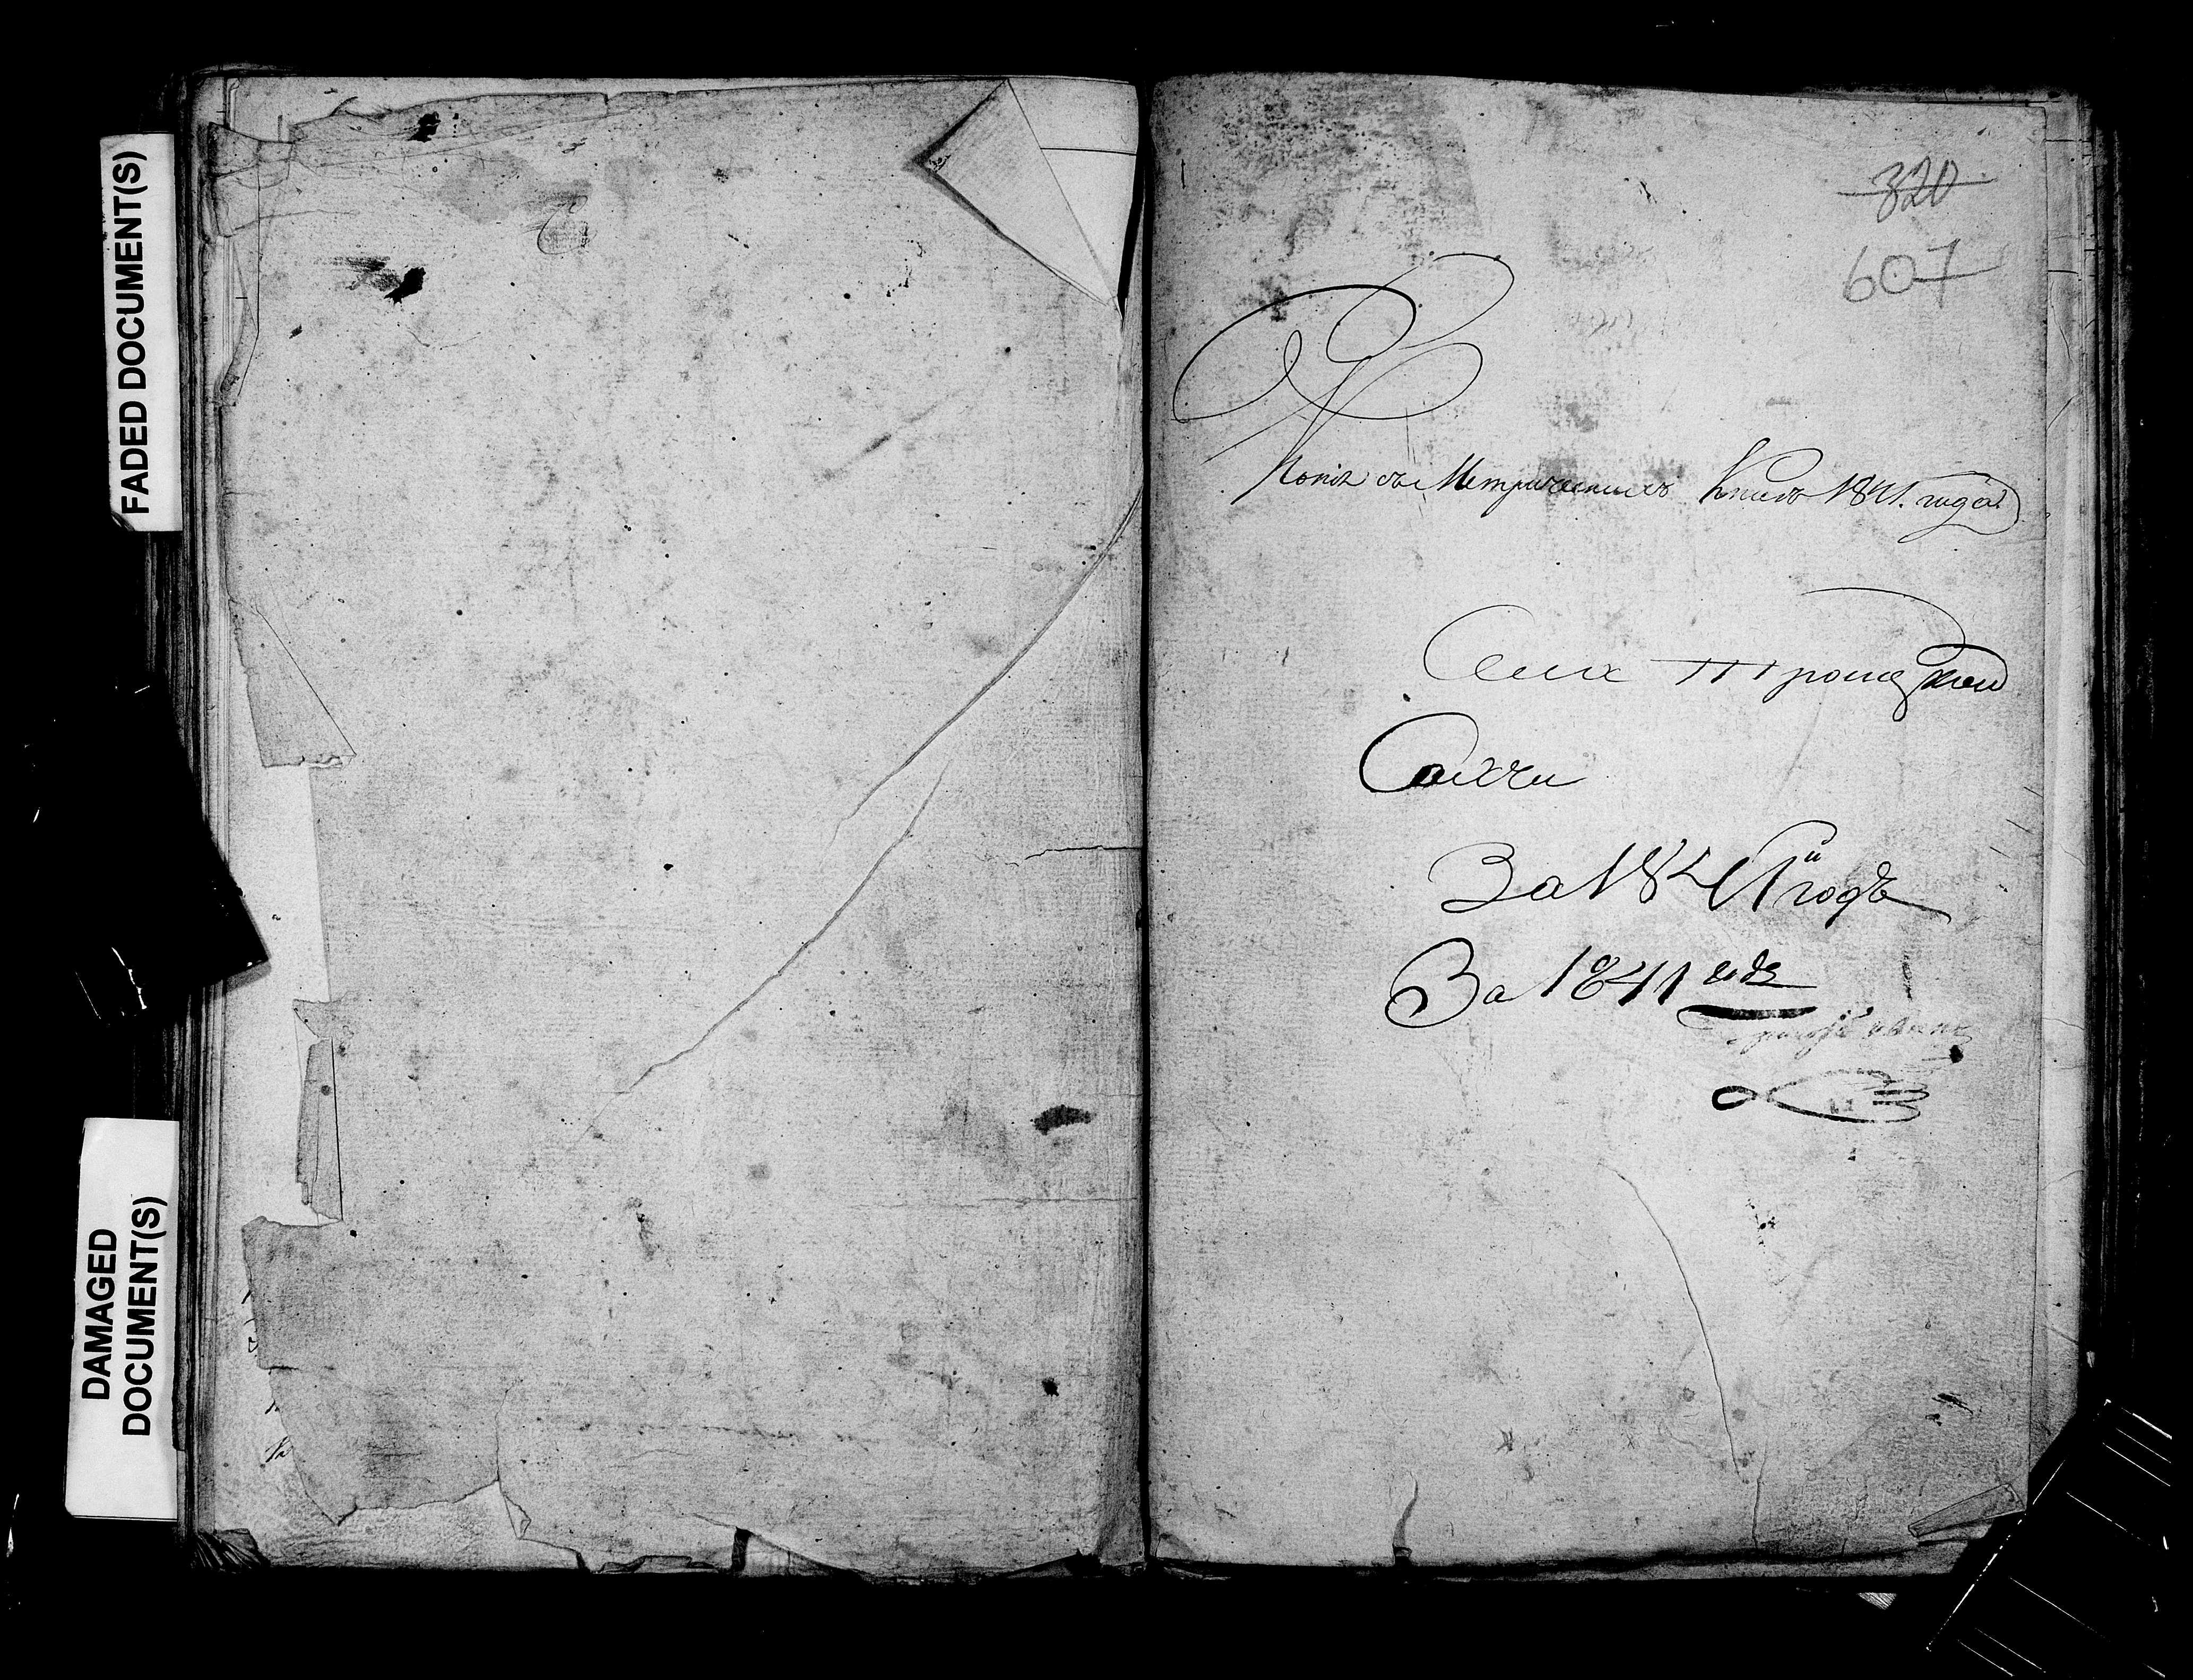 FADED DOCUMENT(S)
DAMAGED
DOCUMENT(S)
320
607
Копія съ Метрическихъ Книгъ 1841. года
Села Троицкой
Салачи
За 1841й годъ
За 1841 годъ